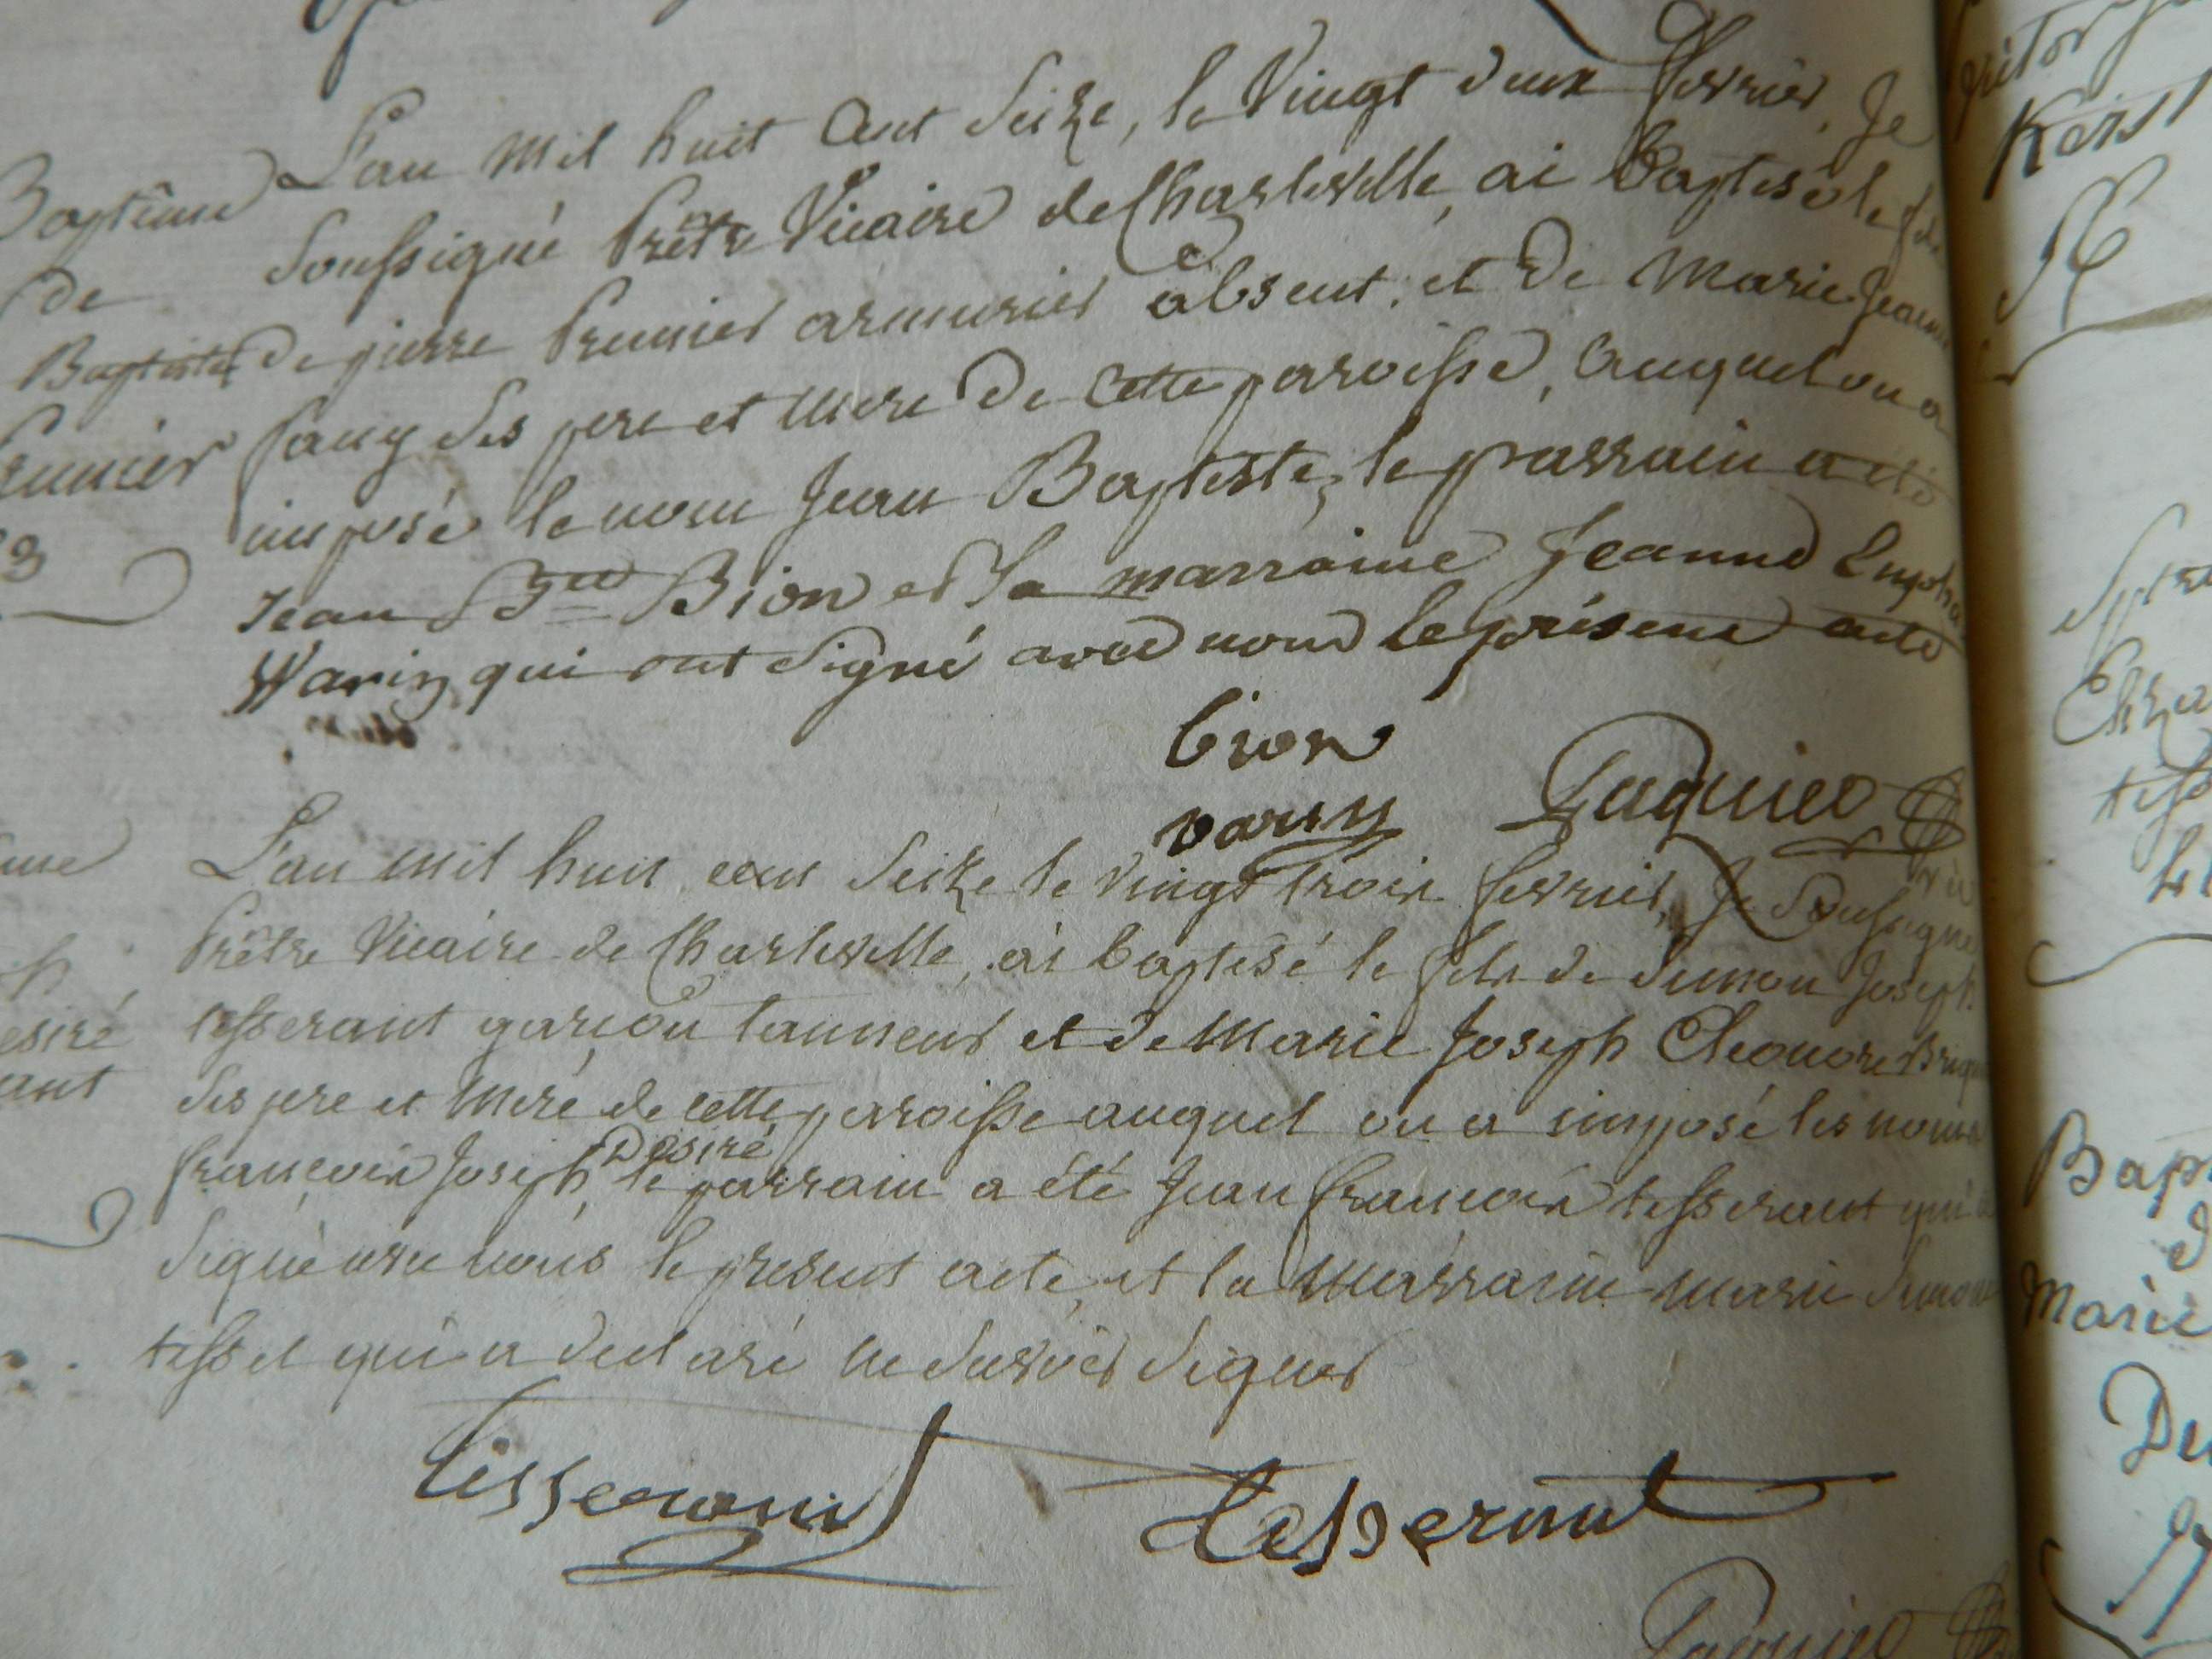 Baptême
de
Baptiste
L'an mil huit Cent Seize, le Vingt deux fevrier, Je
soussigné Prêtre Vicaire de Charleville, ai Baptisé le fils
de pierre Prunier armurier absent, et de Marie Jeanne
ses pere et mere de cette paroisse, auquel on a
imposé le nom Jean Baptiste, le parrain a été
Jean Bte Bion et la marraine Jeanne
Warin qui ont signé avec nous le présent acte
bion
varin Paquier
L'an mil huit cent Seize le vingt trois fevrier, Je Soussigné
Prêtre Vicaire de Charleville, ai baptisé le fils de Simon Joseph
tisserant garçon tanneur et de Marie Joseph Eleonore
ses pere et mere de cette paroisse auquel on a imposé les noms
françois Joseph Désiré, le parrain a été Jean françois tisserant qui a
signé avec nous le présent acte, et la marraine marie
tissel qui a declaré ne savoir signer
tisserant tesserant
Paquier
Kers
Bapt
Marie